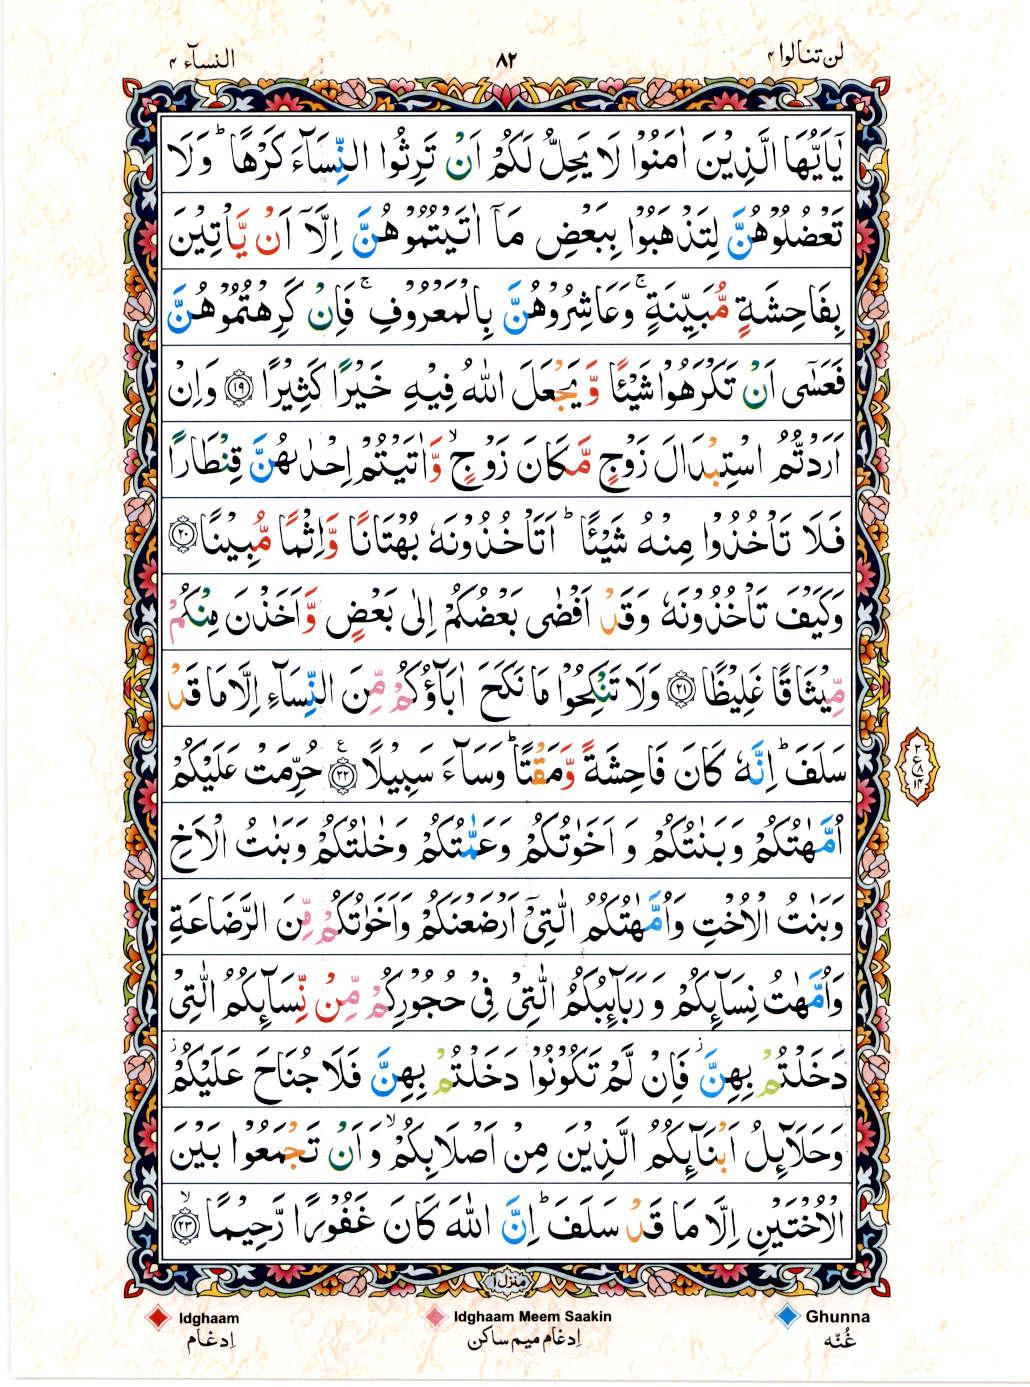 لن تنالوا ۴
۸۲
النسآء ۴
يٰٓاَيُّهَا الَّذِيْنَ اٰمَنُوْا لَا يَحِلُّ لَكُمْ اَنْ تَرِثُوا النِّسَآءَ كَرْهًا ؕ وَلَا
تَعْضُلُوْهُنَّ لِتَذْهَبُوْا بِبَعْضِ مَآ اٰتَيْتُمُوْهُنَّ اِلَّآ اَنْ يَّاْتِيْنَ
بِفَاحِشَةٍ مُّبَيِّنَةٍ ۚ وَعَاشِرُوْهُنَّ بِالْمَعْرُوْفِ ۚ فَاِنْ كَرِهْتُمُوْهُنَّ
فَعَسٰٓى اَنْ تَكْرَهُوْا شَيْـًٔا وَّيَجْعَلَ اللّٰهُ فِيْهِ خَيْرًا كَثِيْرًا ۝۱۹ وَاِنْ
اَرَدْتُّمُ اسْتِبْدَالَ زَوْجٍ مَّكَانَ زَوْجٍ ۙ وَّاٰتَيْتُمْ اِحْدٰىهُنَّ قِنْطَارًا
فَلَا تَاْخُذُوْا مِنْهُ شَيْـًٔا ؕ اَتَاْخُذُوْنَهٗ بُهْتَانًا وَّاِثْمًا مُّبِيْنًا ۝۲۰
وَكَيْفَ تَاْخُذُوْنَهٗ وَقَدْ اَفْضٰى بَعْضُكُمْ اِلٰى بَعْضٍ وَّاَخَذْنَ مِنْكُمْ
مِّيْثَاقًا غَلِيْظًا ۝۲۱ وَلَا تَنْكِحُوْا مَا نَكَحَ اٰبَآؤُكُمْ مِّنَ النِّسَآءِ اِلَّا مَا قَدْ
سَلَفَ ؕ اِنَّهٗ كَانَ فَاحِشَةً وَّمَقْتًا ؕ وَسَآءَ سَبِيْلًا ۝۲۲ حُرِّمَتْ عَلَيْكُمْ
اُمَّهٰتُكُمْ وَبَنٰتُكُمْ وَاَخَوٰتُكُمْ وَعَمّٰتُكُمْ وَخٰلٰتُكُمْ وَبَنٰتُ الْاَخِ
وَبَنٰتُ الْاُخْتِ وَاُمَّهٰتُكُمُ الّٰتِيْٓ اَرْضَعْنَكُمْ وَاَخَوٰتُكُمْ مِّنَ الرَّضَاعَةِ
وَاُمَّهٰتُ نِسَآئِكُمْ وَرَبَآئِبُكُمُ الّٰتِيْ فِيْ حُجُوْرِكُمْ مِّنْ نِّسَآئِكُمُ الّٰتِيْ
دَخَلْتُمْ بِهِنَّ ؗ فَاِنْ لَّمْ تَكُوْنُوْا دَخَلْتُمْ بِهِنَّ فَلَا جُنَاحَ عَلَيْكُمْ ؗ
وَحَلَآئِلُ اَبْنَآئِكُمُ الَّذِيْنَ مِنْ اَصْلَابِكُمْ ۙ وَاَنْ تَجْمَعُوْا بَيْنَ
الْاُخْتَيْنِ اِلَّا مَا قَدْ سَلَفَ ؕ اِنَّ اللّٰهَ كَانَ غَفُوْرًا رَّحِيْمًا ۝۲۳ ۙ
منزل ۱
Ghunna
غُنّه
Idghaam Meem Saakin
اِدغام میم ساکن
Idghaam
اِدغام